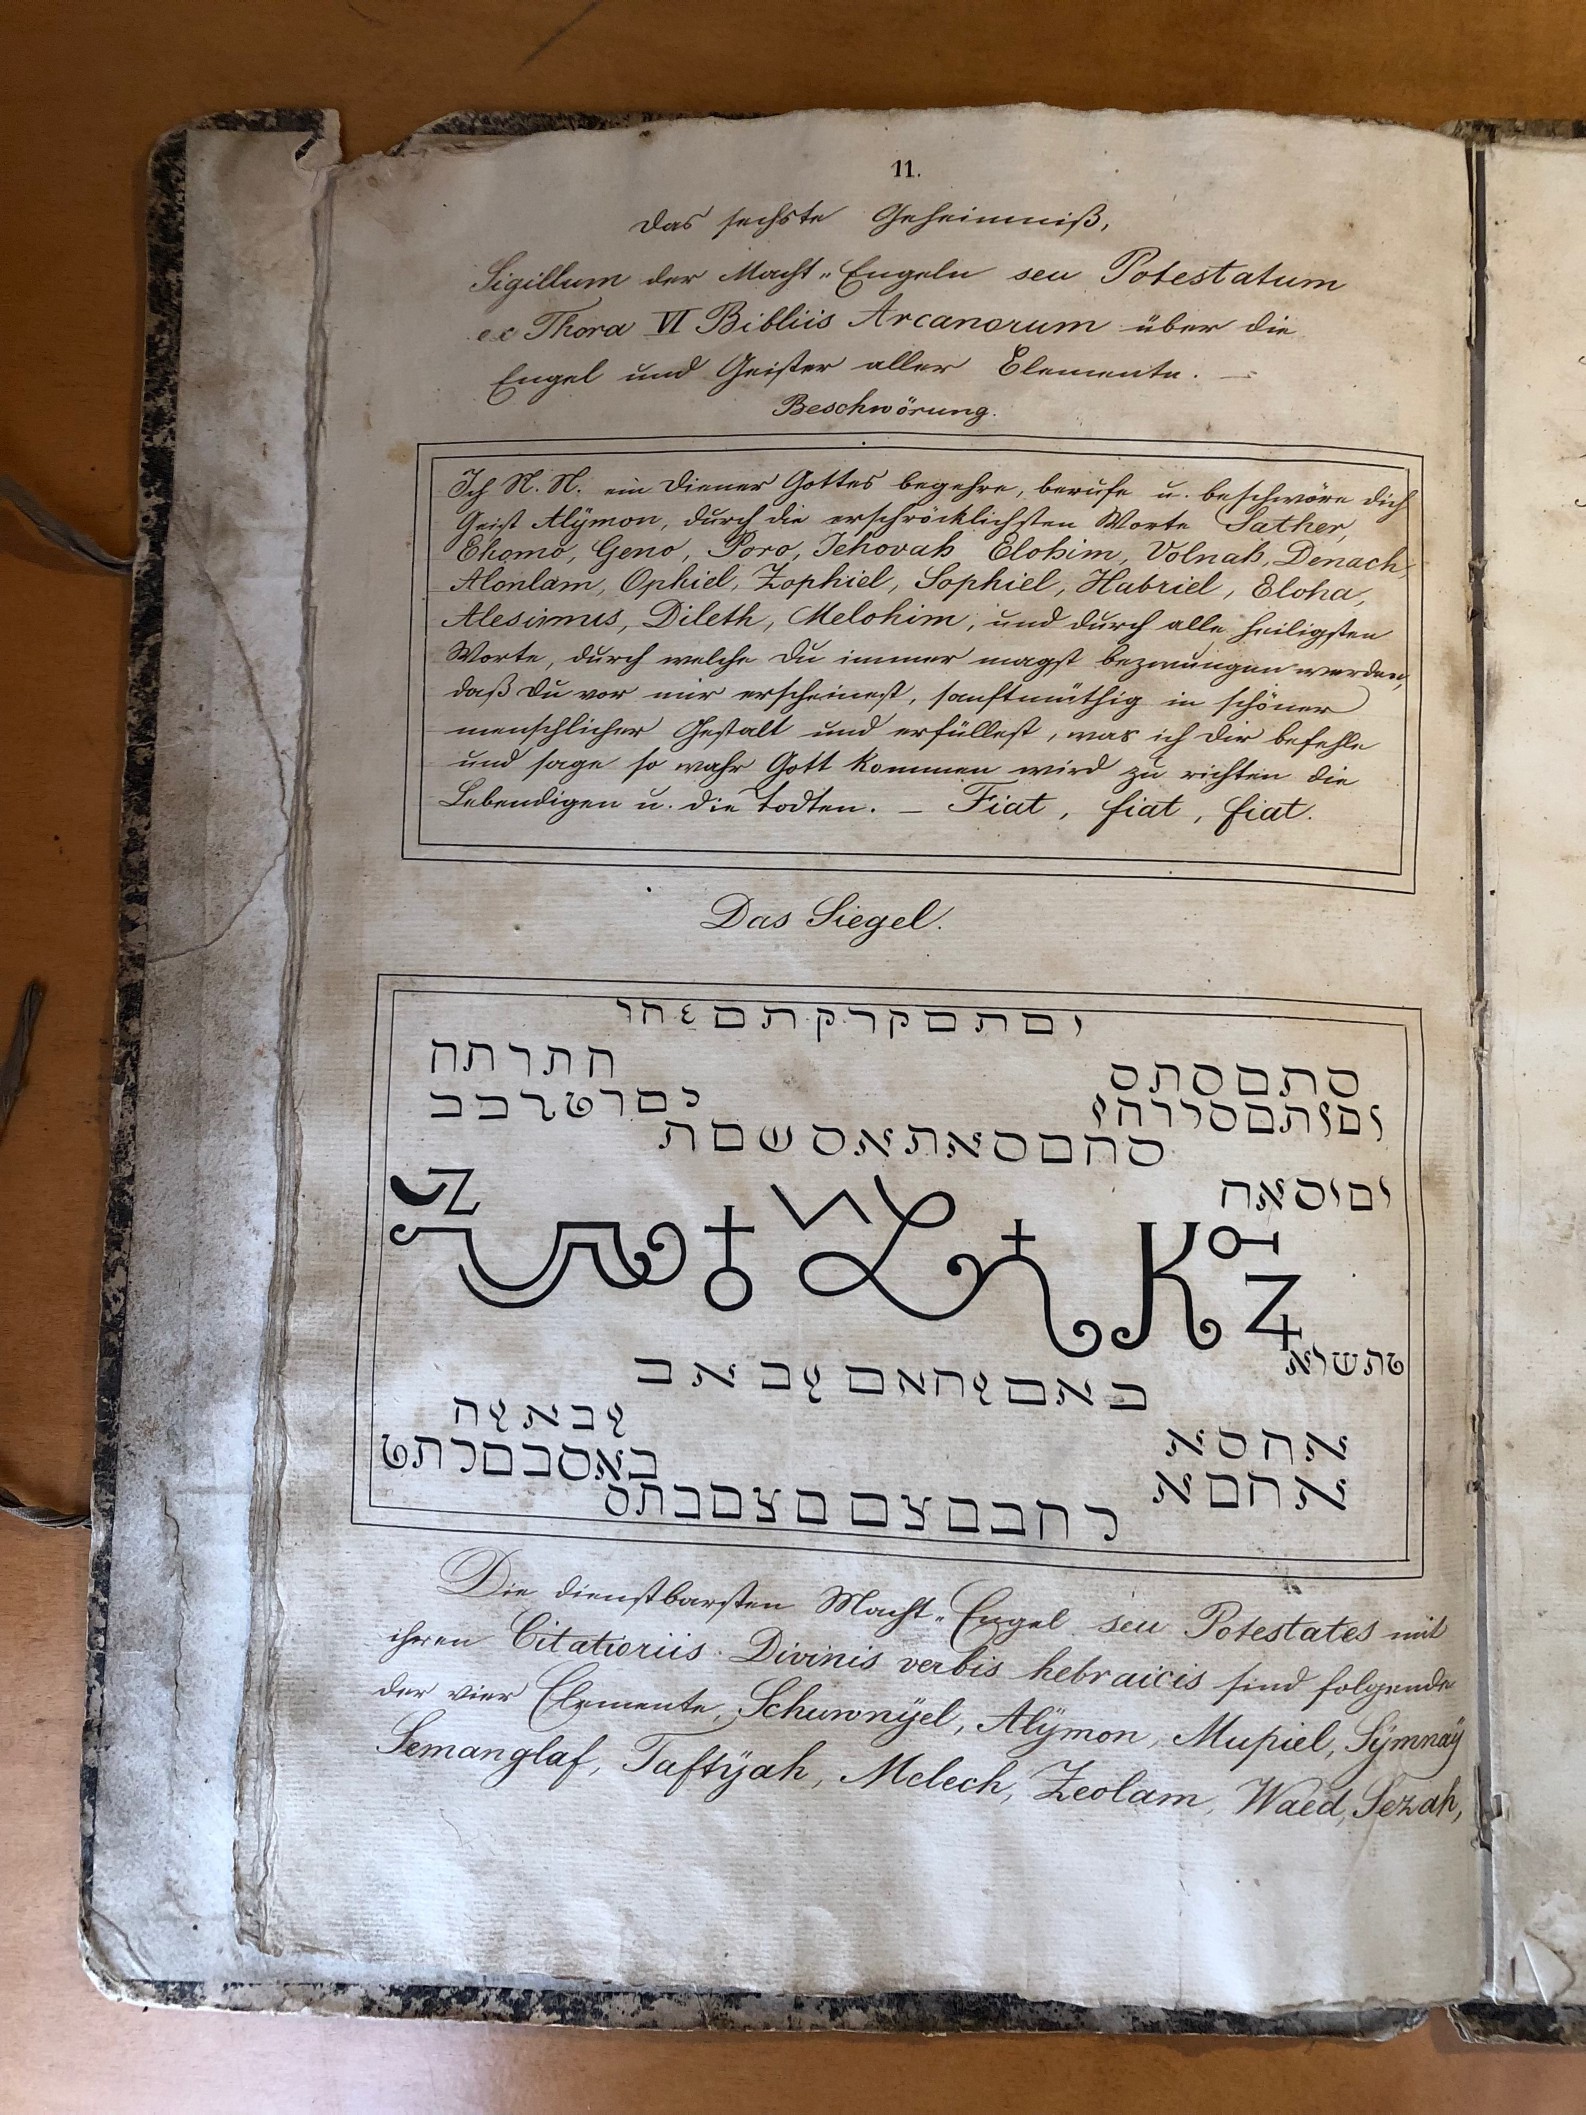 11.
Das sechste Geheimniß,
Sigillum der Macht„Engeln seu Potestatum
ex Thora VI Bibliis Arcanorum über die
Engel und Geister aller Elemente. —
Beschwörung.
Ich N. N. ein Diener Gottes begehre, berufe u. beschwöre dich
Geist Alÿmon, durch die erschröcklichsten Worte Sather,
Ehomo, Geno, Poro, Jehovah Elohim, Volnah, Denach,
Alonlam, Ophiel, Zophiel, Sophiel, Habriel, Eloha,
Alesimus, Dileth, Melohim, und durch alle heiligsten
Worte, durch welche du immer magst bezwungen werden,
daß du vor mir erscheinest, sanftmüthig in schöner
menschlicher Gestalt und erfüllest, was ich dir befehle
und sage so wahr Gott kommen wird zu richten die
Lebendigen u. die Todten. — Fiat, fiat, fiat.
Das Siegel.
חתרתה
סתםסתס
סהםסאתאסשםת
יםיסאה
טתשרא
אהסא
אהםא
Die dienstbarsten Macht„Engel seu Potestates mit
ihren Citatioriis Divinis verbis hebraicis sind folgende
der vier Elemente, Schuwnÿel, Alÿmon, Mupiel, Sÿmnaÿ
Semanglaf, Taftÿah, Melech, Zeolam, Waed, Sezah,